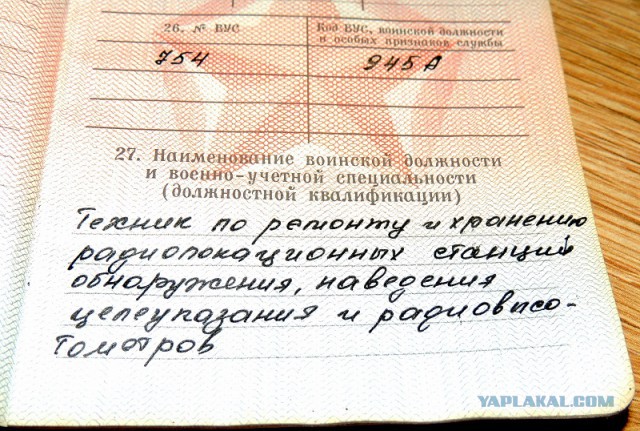 26. № ВУС
Код ВУС, воинской должности
и особых признаков службы
754
945А
27. Наименование воинской должности
и военно-учетной специальности
(должностной квалификации)
Техник по ремонту и хранению
радиолокационных станций
обнаружения, наведения
целеуказания и радиовысо-
тометров
YAPLAKAL.COM